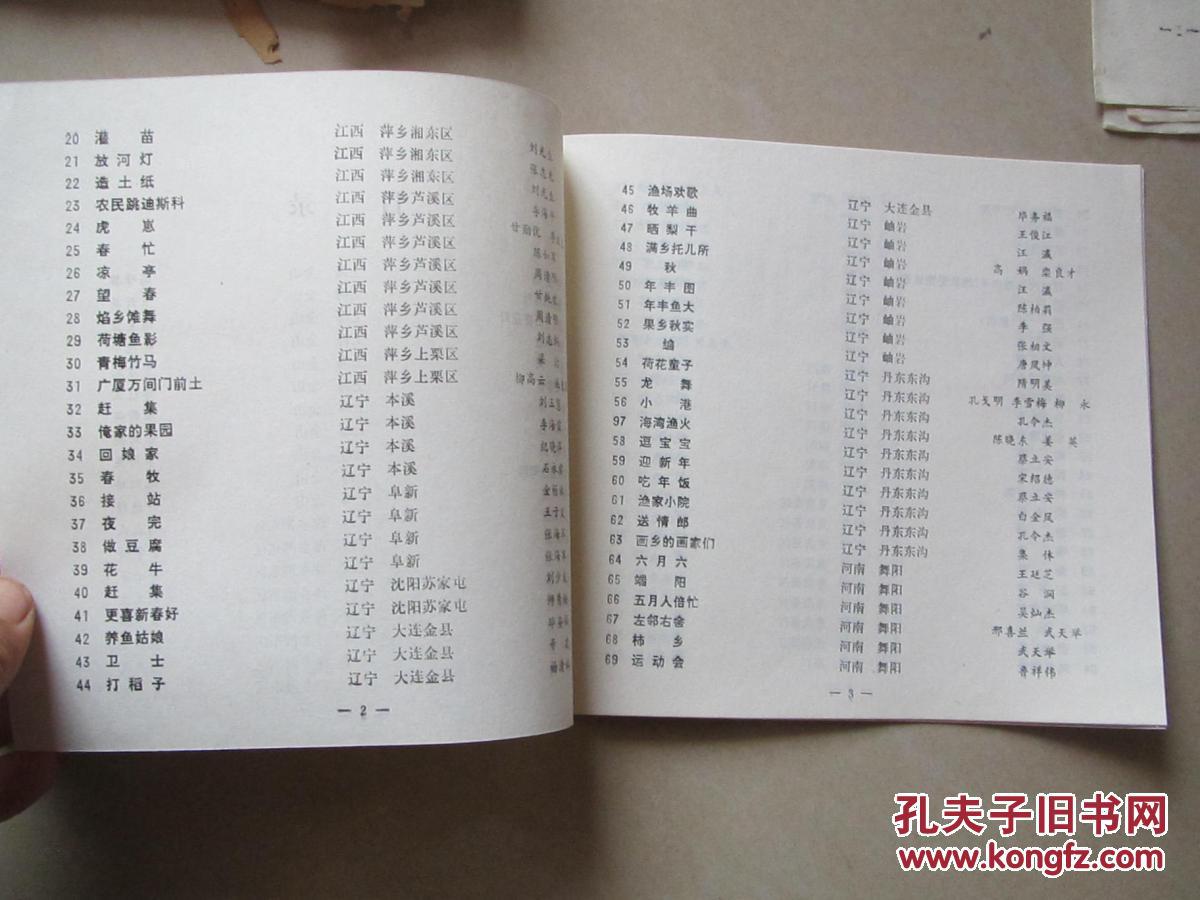 20 灌 苗 江西 萍乡湘东区
21 放河灯 江西 萍乡湘东区
22 造土纸 江西 萍乡湘东区
23 农民跳迪斯科 江西 萍乡芦溪区
24 虎 崽 江西 萍乡芦溪区
25 春 忙 江西 萍乡芦溪区
26 凉 亭 江西 萍乡芦溪区
27 望 春 江西 萍乡芦溪区
28 焰乡傩舞 江西 萍乡芦溪区
29 荷塘鱼影 江西 萍乡芦溪区
30 青梅竹马 江西 萍乡上栗区
31 广厦万间门前土 江西 萍乡上栗区 柳高云
32 赶 集 辽宁 本溪
33 俺家的果园 辽宁 本溪
34 回娘家 辽宁 本溪
35 春 牧 辽宁 本溪
36 接 站 辽宁 阜新
37 夜 完 辽宁 阜新
38 做豆腐 辽宁 阜新
39 花 牛 辽宁 阜新
40 赶 集 辽宁 沈阳苏家屯
41 更喜新春好 辽宁 沈阳苏家屯
42 养鱼姑娘 辽宁 大连金县
43 卫 士 辽宁 大连金县
44 打稻子 辽宁 大连金县
— 2 —
45 渔场欢歌 辽宁 大连金县 毕务福
46 牧羊曲 辽宁 岫岩 王俊江
47 晒梨干 辽宁 岫岩 汪 瀛
48 满乡托儿所 辽宁 岫岩 高 娲 栾良才
49 秋 辽宁 岫岩 汪 瀛
50 年丰图 辽宁 岫岩 陈柏莉
51 年丰鱼大 辽宁 岫岩 李 强
52 果乡秋实 辽宁 岫岩 张柏文
53 辽宁 岫岩 唐凤坤
54 荷花童子 辽宁 丹东东沟 隋明美
55 龙 舞 辽宁 丹东东沟 孔戈明 李雪梅 柳 永
56 小 港 辽宁 丹东东沟 孔令杰
97 海湾渔火 辽宁 丹东东沟 陈晓东 姜 英
58 逗宝宝 辽宁 丹东东沟 蔡立安
59 迎新年 辽宁 丹东东沟 宋绍德
60 吃年饭 辽宁 丹东东沟 蔡立安
61 渔家小院 辽宁 丹东东沟 白金凤
62 送情郎 辽宁 丹东东沟 孔令杰
63 画乡的画家们 辽宁 丹东东沟 集 体
64 六月六 河南 舞阳 王廷芝
65 端 阳 河南 舞阳 谷 涧
66 五月人倍忙 河南 舞阳 吴灿杰
67 左邻右舍 河南 舞阳 邢喜兰 武天举
68 柿 乡 河南 舞阳 武天举
69 运动会 河南 舞阳 鲁祥伟
— 3 —
孔夫子旧书网
www.kongfz.com